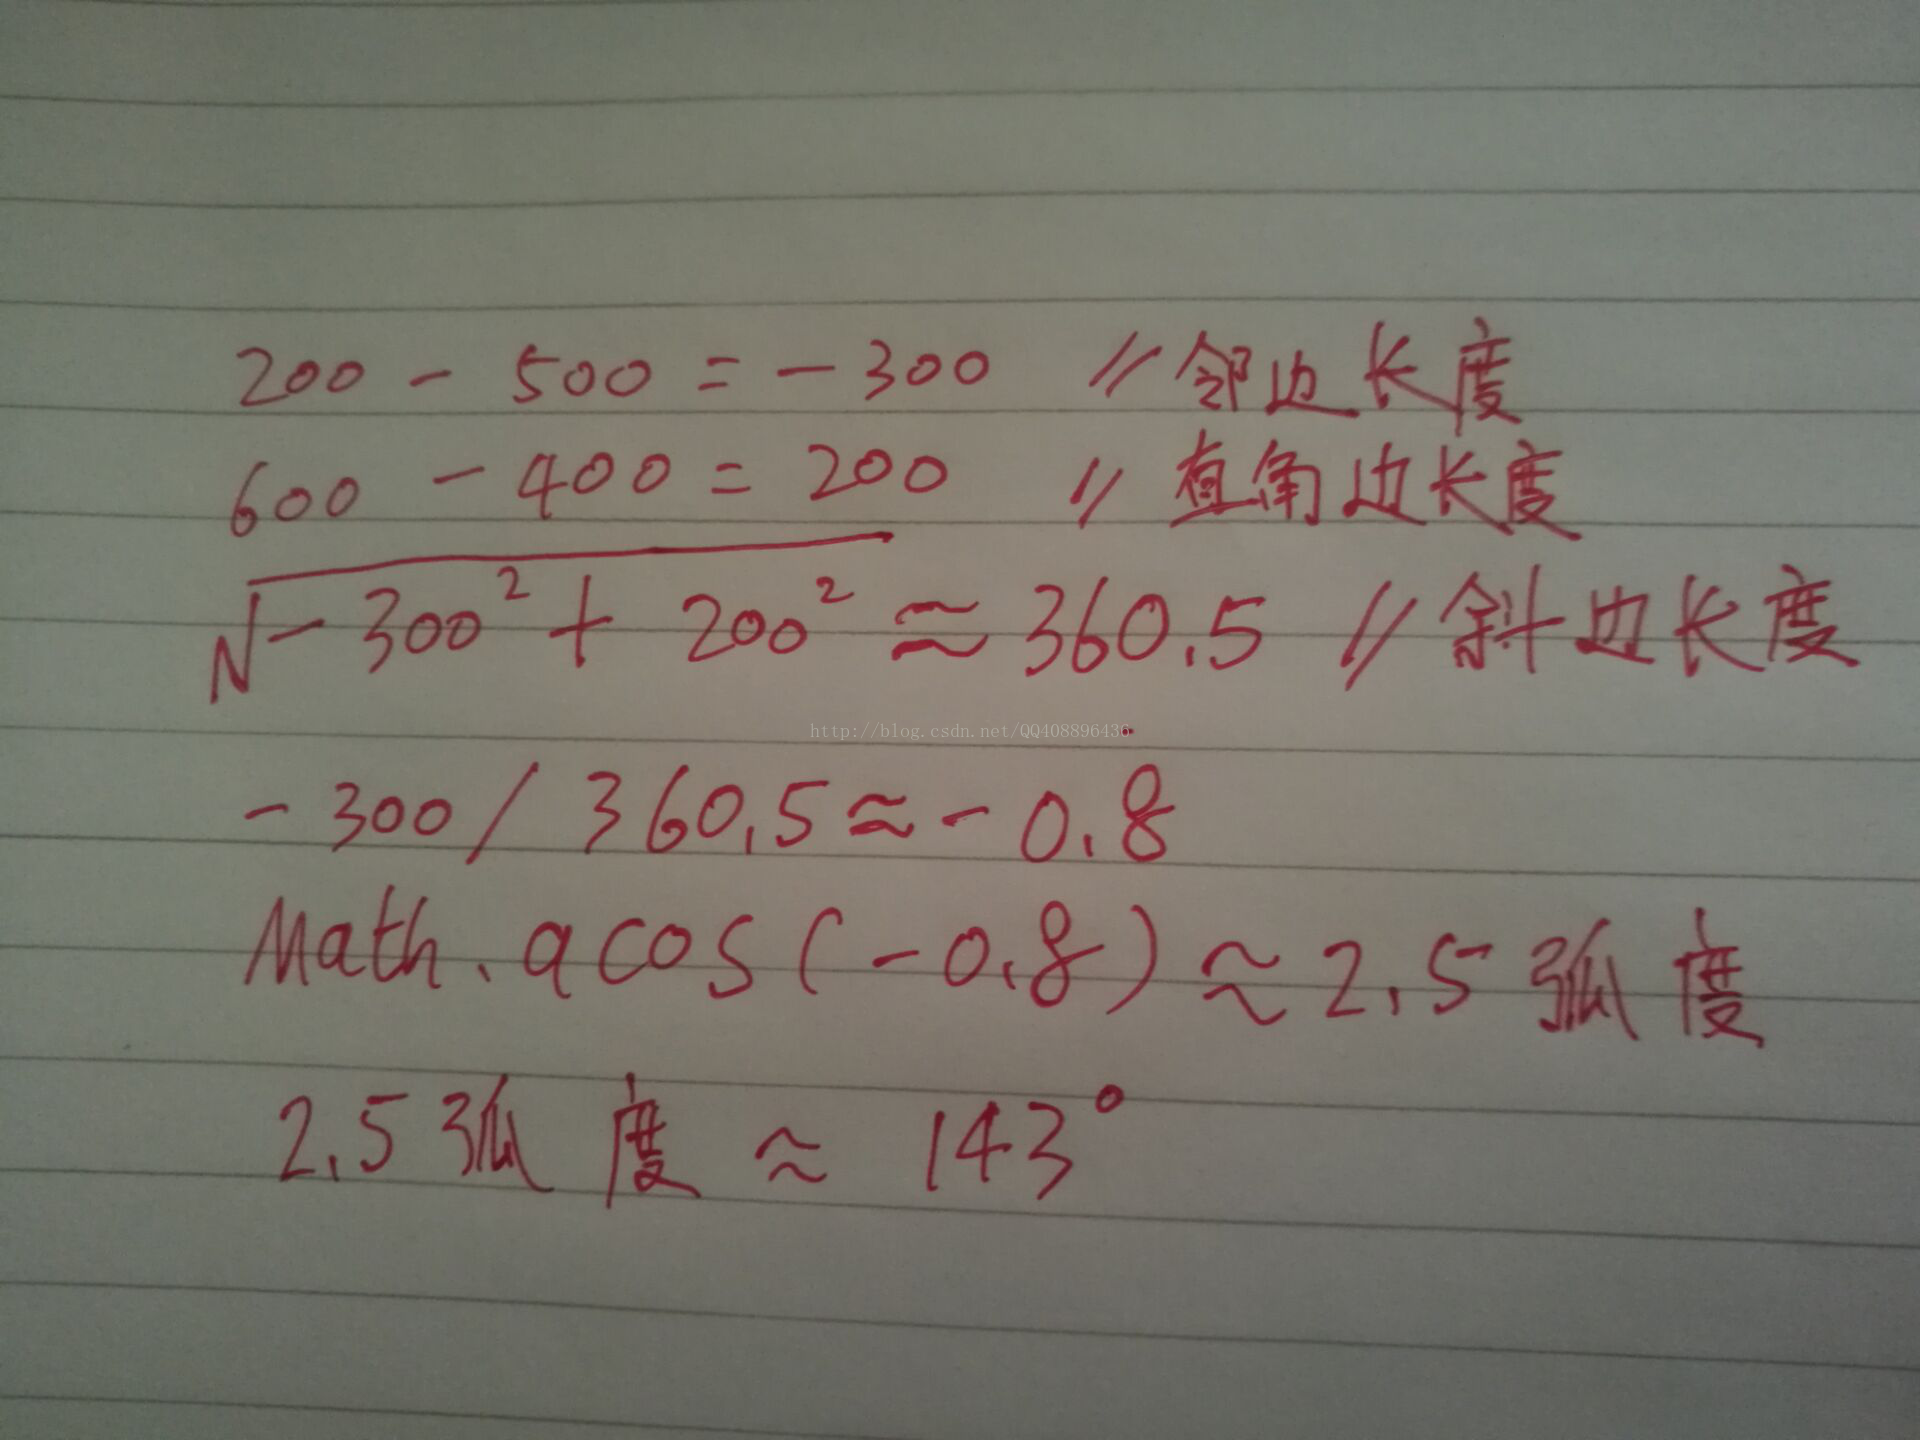 200 - 500 = -300 // 邻边长度
600 - 400 = 200 // 直角边长度
√-300² + 200² ≈ 360.5 // 斜边长度
http://blog.csdn.net/QQ408896436
-300 / 360.5 ≈ -0.8
Math.acos(-0.8) ≈ 2.5 弧度
2.5 弧度 ≈ 143°